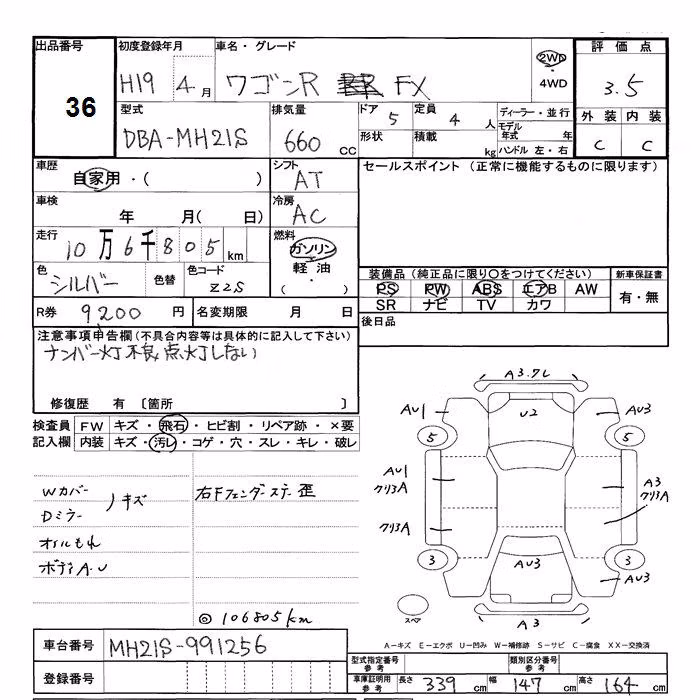 出品番号 初度登録年月 車名・グレード 評価点
36 H19 4月 ワゴンR FX 2WD ・ 4WD 3.5
外装 内装
C C
型式 排気量 ドア 定員 ディーラー・並行
DBA-MH21S 660 CC 5 4 人 モデル年式 年
形状 積載 kg ハンドル 左・右
車歴 シフト セールスポイント (正常に機能するものに限ります)
自家用・( ) AT
車検 冷房
年 月( 日) AC
走行 燃料
10万6千805km ガソリン
軽油
( ・ )
色 色替 色コード
シルバー Z2S
装備品 (純正品に限り○をつけてください) 新車保証書
PS PW ABS エアB AW 有・無
SR ナビ TV カワ
R券 9200 円 名変期限 月 日
後日品
注意事項申告欄(不具合内容等は具体的に記入して下さい)
ナンバー灯不良点灯しない
修復歴 有 〔箇所 〕
検査員 FW キズ・飛石・ヒビ割・リペア跡・×要
記入欄 内装 キズ・汚レ・コゲ・穴・スレ・キレ・破レ
Wカバー
Dミラー
キズ
オイルもれ
ボディA・U
右Fフェンダーステー歪
◎106805km
A3.ワレ
AU1 U2 AU3
5 5
AU1 A3
クリアA クリアA
クリアA
3 3
AU3 AU3
スペア A3
A-キズ E-エクボ U-凹ミ W-補修跡 S-サビ C-腐食 XX-交換済
車台番号 MH21S-991256
登録番号
型式指定番号 参考 類別区分番号 参考
車庫証明用 参考 長さ 339 cm 幅 147 cm 高さ 164 cm